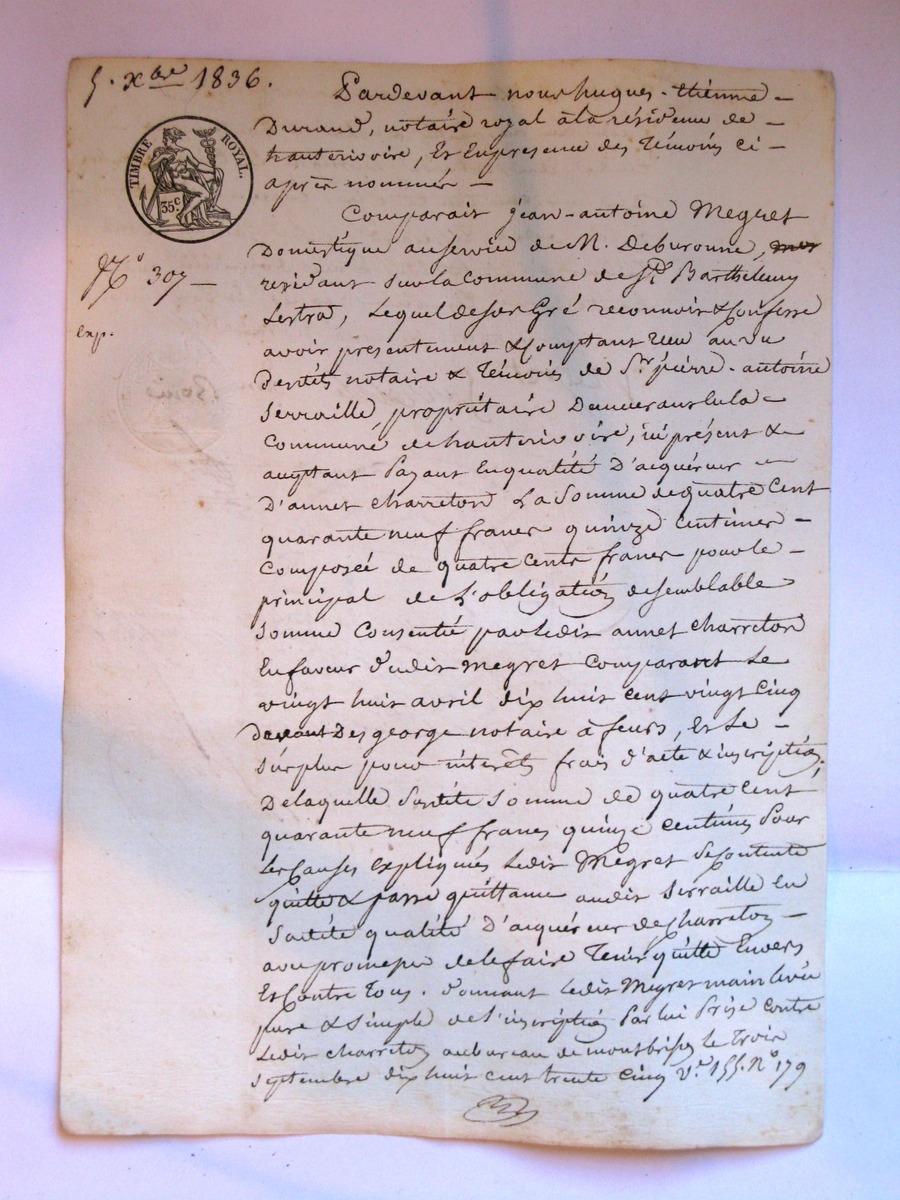 5. xbre 1836.
Pardevant nous hugues-étienne
Durand, notaire royal à la résidence de
hauterivoire, Et En presence des Témoins ci
après nommés
TIMBRE ROYAL.
35c
Comparait jean-antoine Megret
Domestique au service de M. Deburonne,
residant sur la Commune de St Barthelemy
Lestra, Lequel de son Gré reconnoit & Confesse
No 307
exp.
avoir presentement & Comptant reçu au vu
Desdits notaire & Témoins de Sr. pierre-antoine
Serraille propriétaire Demeurant sur la
Commune de hauterivoire, ici présent &
acceptant Payant En qualité D'acquéreur
D'annet Charreton La Somme de quatre Cent
quarante neuf francs quinze Centimes
Composée de quatre Cents francs pour le
principal de L'obligation de semblable
Somme Consentie par Ledit annet Charreton
En faveur dudit Megret Comparant Le
vingt huit avril dix huit cent vingt cinq
devant Desgeorge notaire à feurs, Et Le
Surplus pour intérêts frais d'acte & inscription.
De laquelle Susdite Somme de quatre Cent
quarante neuf francs quinze Centimes Pour
Les Causes Expliquées Ledit Megret se Contente
quitte & passe quittance audit Serraille En
Sadite qualité D'acquéreur de Charreton
avec promesse de le faire Tenir quitte Envers
Et Contre Tous. donnant Ledit Megret main levée
pure & Simple de l'inscription Par lui Prise Contre
Ledit Charreton au bureau de montbrison le Trois
Septembre dix huit cent trente cinq Ve. 155. No 179